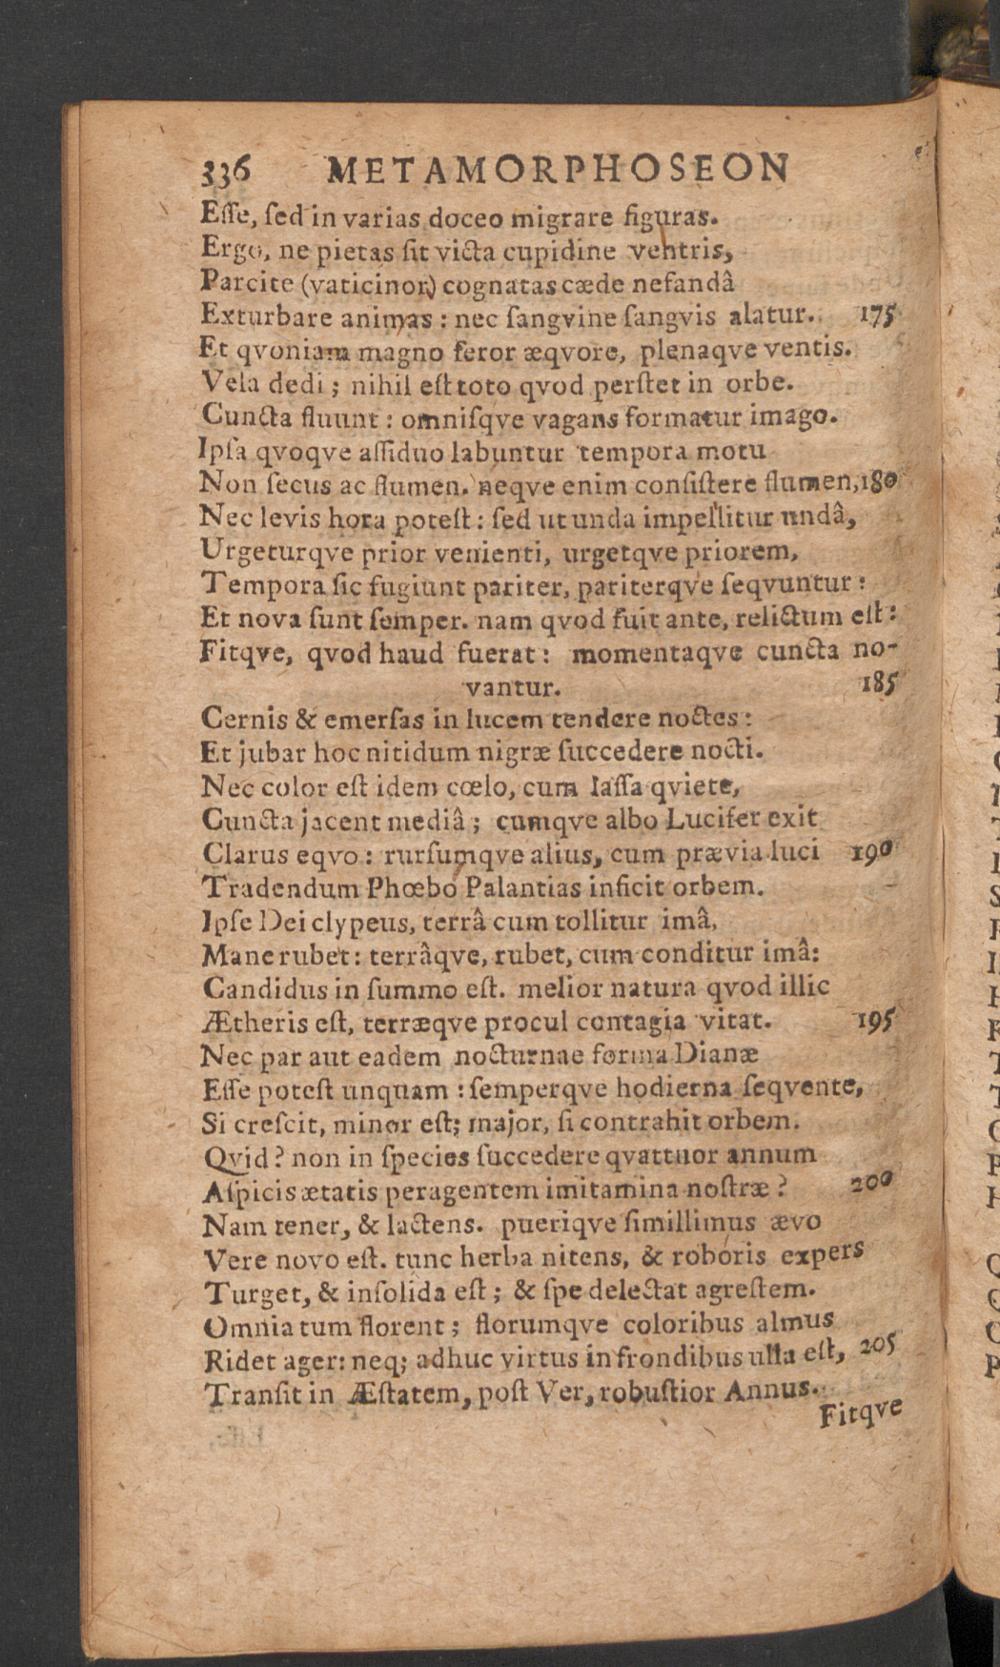 336 METAMORPHOSEON
Eſſe, ſed in varias doceo migrare figuras.
Ergo, ne pietas ſit victa cupidine ventris,
Parcite (vaticinor) cognatas cæde nefandâ
Exturbare animas : nec ſangvine ſangvis alatur. 175
Et qvoniam magno feror æqvore, plenaqve ventis.
Vela dedi ; nihil eſt toto qvod perſtet in orbe.
Cuncta fluunt : omniſqve vagans formatur imago.
Ipſa qvoqve aſſiduo labuntur tempora motu
Non ſecus ac flumen. neqve enim conſiſtere flumen, 180
Nec levis hora poteſt : ſed ut unda impellitur undâ,
Urgeturqve prior venienti, urgetqve priorem,
Tempora ſic fugiunt pariter, pariterqve ſeqvuntur :
Et nova ſunt ſemper. nam qvod fuit ante, relictum eſt :
Fitqve, qvod haud fuerat : momentaqve cuncta no-
vantur. 185
Cernis & emerſas in lucem tendere noctes :
Et jubar hoc nitidum nigræ ſuccedere nocti.
Nec color eſt idem cœlo, cum laſſa qviete,
Cuncta jacent mediâ ; cumqve albo Lucifer exit
Clarus eqvo : rurſumqve alius, cum prævia luci 190
Tradendum Phœbo Palantias inficit orbem.
Ipſe Dei clypeus, terrâ cum tollitur imâ,
Mane rubet : terrâqve, rubet, cum conditur imâ:
Candidus in ſummo eſt. melior natura qvod illic
Ætheris eſt, terræqve procul contagia vitat. 195
Nec par aut eadem nocturnae forma Dianæ
Eſſe poteſt unquam : ſemperqve hodierna ſeqvente,
Si creſcit, minor eſt; major, ſi contrahit orbem.
Qvid ? non in ſpecies ſuccedere qvattuor annum
Aſpicis ætatis peragentem imitamina noſtræ ? 200
Nam tener, & lactens. pueriqve ſimillimus ævo
Vere novo eſt. tunc herba nitens, & roboris expers
Turget, & inſolida eſt ; & ſpe delectat agreſtem.
Omnia tum florent ; florumqve coloribus almus
Ridet ager: neq; adhuc virtus in frondibus ulla eſt, 205
Tranſit in Æſtatem, poſt Ver, robuſtior Annus.
Fitqve